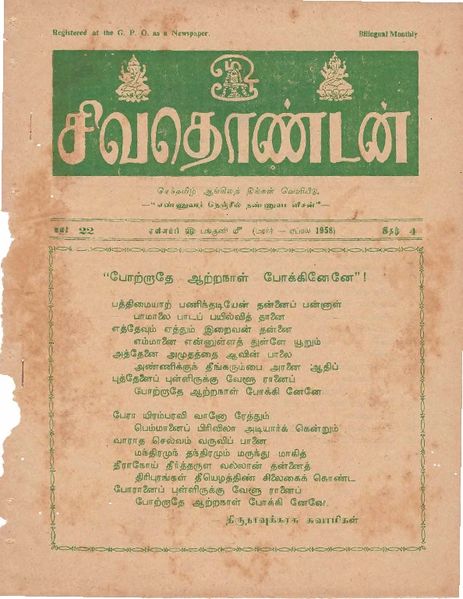 Registered at the G. P. O. as a Newspaper. Bilingual Monthly
சிவதொண்டன்
செந்தமிழ் ஆங்கிலத் திங்கள் வெளியீடு.
—“எண்ணுவார் நெஞ்சில் நண்ணுவா னீசன்”—
மலர் 22 பங்குனி மீ (மார்ச் - ஏப்ரல் 1958) இதழ் 4
“போற்றாதே ஆற்றநாள் போக்கினேனே”!
பத்திமையாற் பணிந்தடியேன் தன்னைப் பன்னாள்
பாமாலை பாடப் பயில்வித் தானை
எத்தேவும் ஏத்தும் இறைவன் தன்னை
எம்மானை என்னுள்ளத் துள்ளே யூறும்
அத்தேனை அமுதத்தை ஆவின் பாலை
அண்ணிக்குந் தீங்கரும்பை அரனை ஆதிப்
புத்தேனைப் புள்ளிருக்கு வேளூ ரானைப்
போற்றாதே ஆற்றநாள் போக்கி னேனே.
பேரா யிரம்பரவி வானோ ரேத்தும்
பெம்மானைப் பிரிவிலா அடியார்க் கென்றும்
வாராத செல்வம் வருவிப் பானை
மந்திரமுந் தந்திரமும் மருந்து மாகித்
தீராநோய் தீர்த்தருள வல்லான் தன்னைத்
திரிபுரங்கள் தீயெழத்திண் சிலைகைக் கொண்ட
போரானைப் புள்ளிருக்கு வேளூ ரானைப்
போற்றாதே ஆற்றநாள் போக்கி னேனே.
திருநாவுக்கரசு சுவாமிகள்